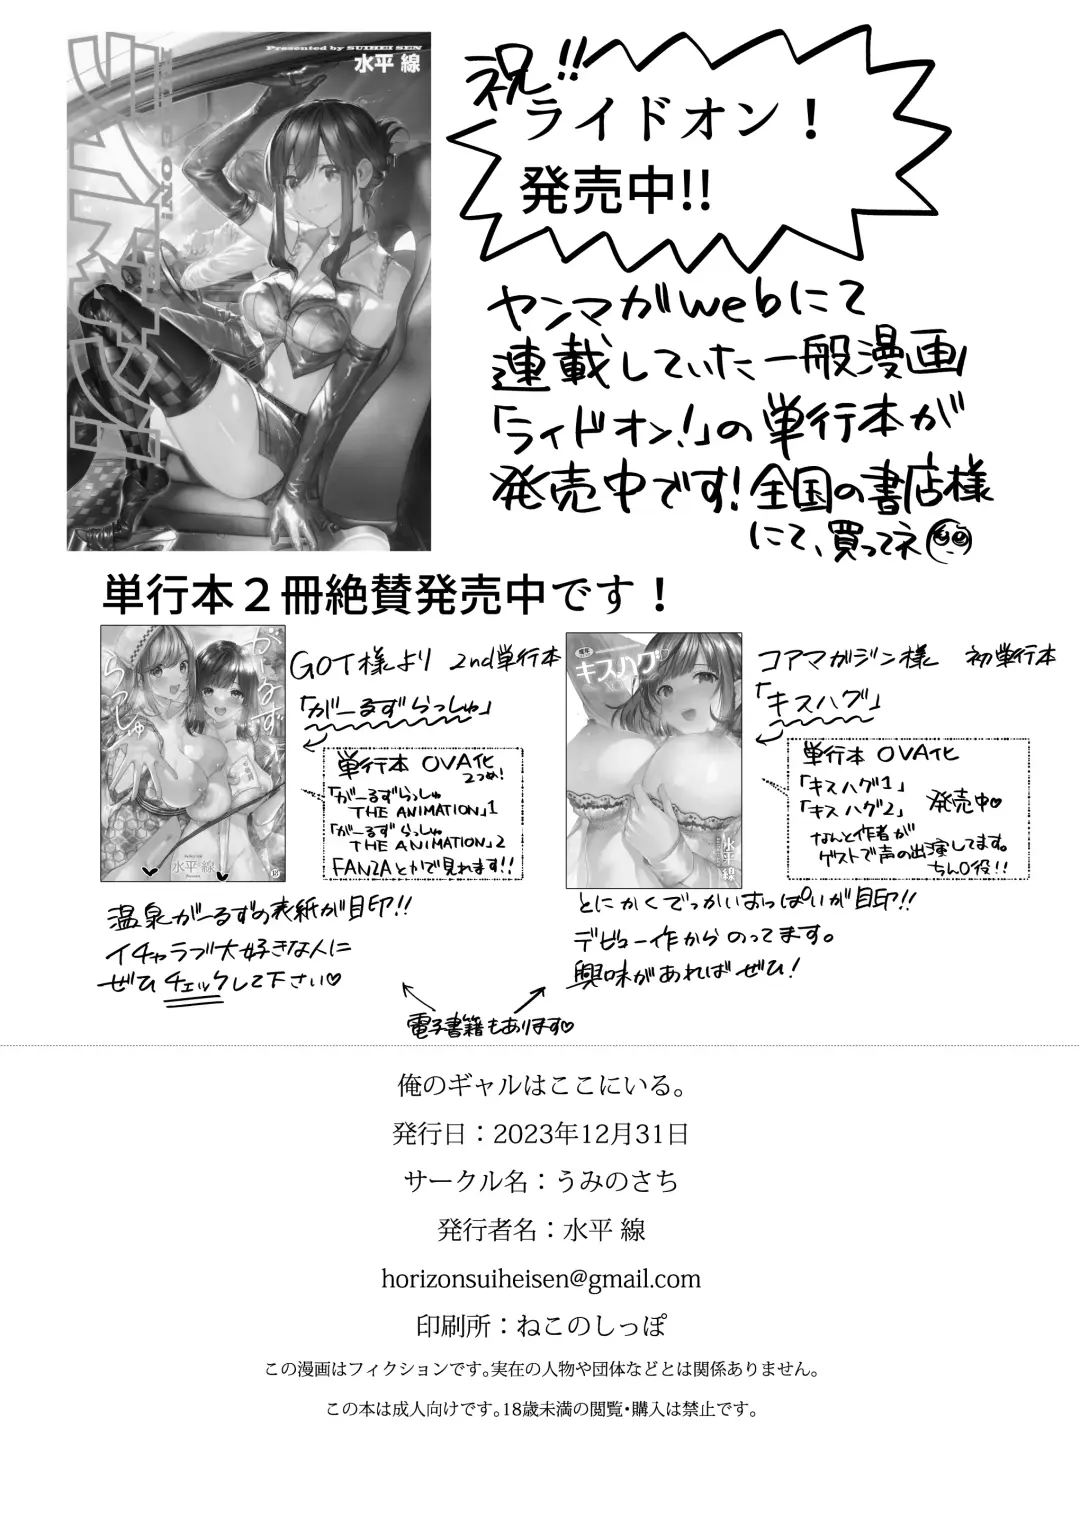 Presented by SUIHEI SEN
水平 線
祝!!
ライドオン！
発売中!!
ヤンマガwebにて
連載していた一般漫画
「ライドオン！」の単行本が
発売中です！全国の書店様
にて、買ってネ
単行本２冊絶賛発売中です！
がーるず
らっしゅ
水平線
GOT様より 2nd単行本
「がーるずらっしゅ」
単行本 OVA化
2つめ！
「がーるずらっしゅ
THE ANIMATION」1
「がーるずらっしゅ
THE ANIMATION」2
FANZAとかで見れます!!
温泉がーるずの表紙が目印!!
イチャラブ大好きな人に
ぜひチェックして下さい♡
キスハグ
水平線
コアマガジン様 初単行本
「キスハグ」
単行本 OVA化
「キスハグ1」
「キスハグ2」 発売中♡
なんと作者が
ゲストで声の出演してます。
ちん〇役!!
とにかくでっかいおっぱいが目印!!
デビュー作からのってます。
興味があればぜひ！
電子書籍もあります♡
俺のギャルはここにいる。
発行日：2023年12月31日
サークル名：うみのさち
発行者名：水平 線
horizonsuiheisen@gmail.com
印刷所：ねこのしっぽ
この漫画はフィクションです。実在の人物や団体などとは関係ありません。
この本は成人向けです。18歳未満の閲覧・購入は禁止です。